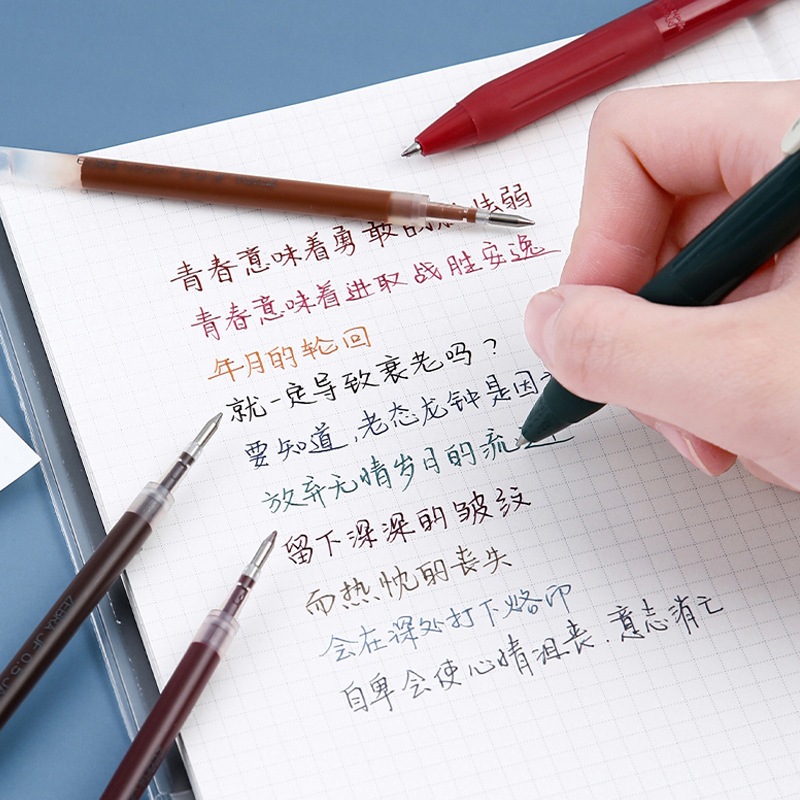 青春意味着勇敢 怯弱
青春意味着进取战胜安逸
年月的轮回
就一定导致衰老吗？
要知道,老态龙钟是因
放弃无情岁月的流
留下深深的皱纹
而热忱的丧失
会在深处打下烙印
自卑会使心情沮丧.意志消亡
ZEBRA JF-0.5